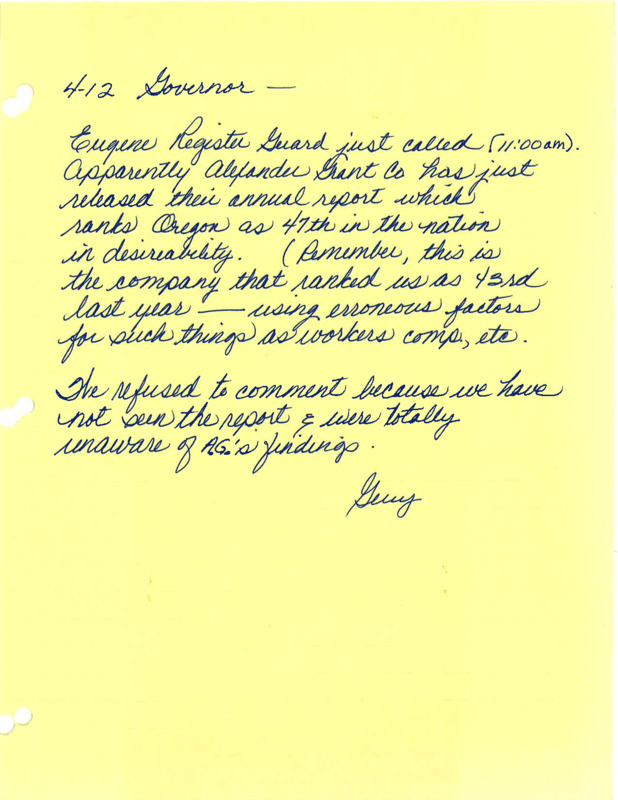 4-12 Governor —
Eugene Register Guard just called (11:00am).
Apparently Alexander Grant Co has just
released their annual report which
ranks Oregon as 47th in the nation
in desireability. (Remember, this is
the company that ranked us as 43rd
last year — using erroneous factors
for such things as workers comp, etc.
I've refused to comment because we have
not seen the report & were totally
unaware of A.G.'s findings.
Gerry